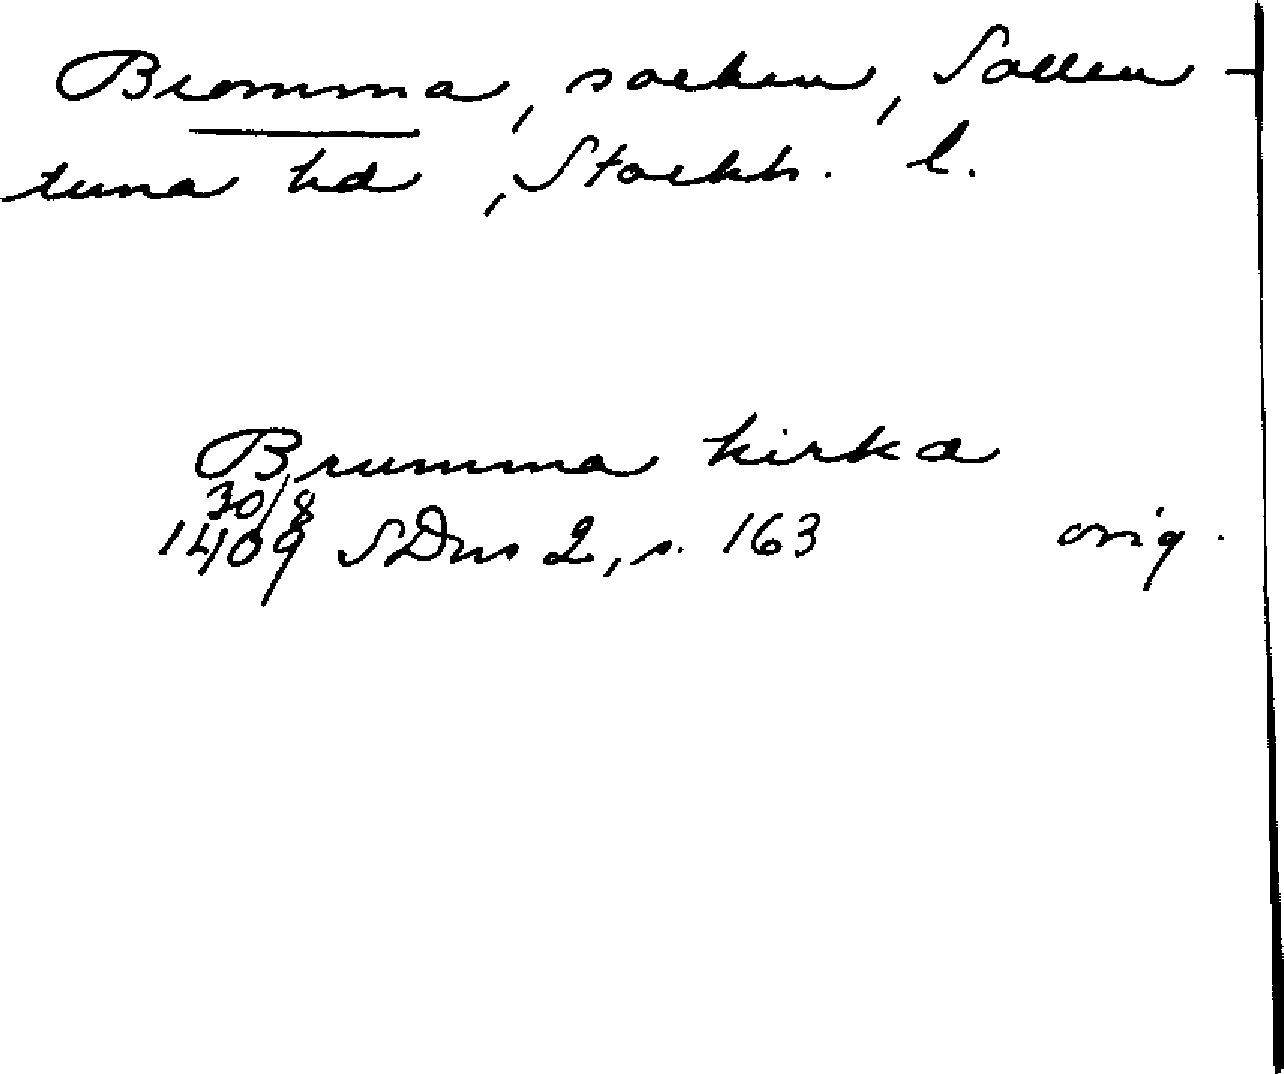 Bromma, socken, Sollen-
tuna hd, Stockh. l.
Brumma kirka
30/8
1409 SDns 2, s. 163 orig.